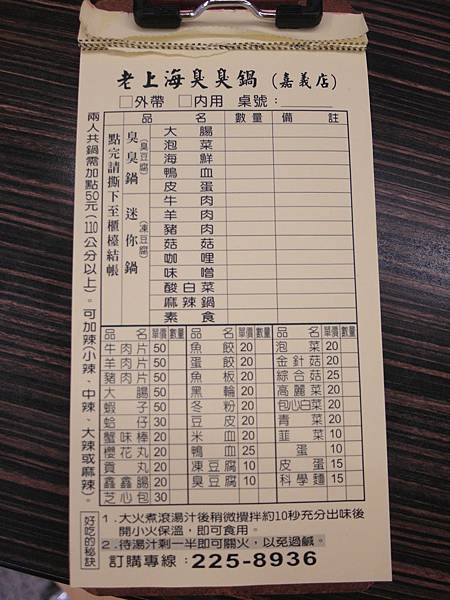 老上海臭臭鍋(嘉義店)
□外帶 □内用 桌號:
兩人共鍋需加點50元(110公分以上)。可加辣(小辣、中辣、大辣或麻辣)。
點完請撕下至櫃檯結帳
臭臭鍋(臭豆腐) 迷你鍋(凍豆腐)
品名 數量 備註
大腸
泡菜
海鮮
鴨血
皮蛋
牛肉
羊肉
豬肉
菇菇
咖哩
味噌
酸白菜
麻辣鍋
素食
品名 單價 數量 品名 單價 數量 品名 單價 數量
牛肉片 50 魚餃 20 泡菜 20
羊肉片 50 蛋餃 20 金針菇 20
豬肉片 50 魚板 20 綜合菇 25
大腸 50 黑輪 20 高麗菜 20
蝦子 50 冬粉 20 包心白菜 20
蛤仔 30 豆皮 20 青菜 20
蟹味棒 20 米血 20 韮菜 10
櫻花丸 20 鴨血 25 蛋 10
貢丸 20 凍豆腐 10 皮蛋 15
鑫鑫腸 20 臭豆腐 10 科學麵 15
芝心包 30
好吃的秘訣
1.大火煮滾湯汁後稍微攪拌約10秒充分出味後
開小火保溫,即可食用。
2.待湯汁剩一半即可關火,以免過鹹。
訂購專線:225-8936